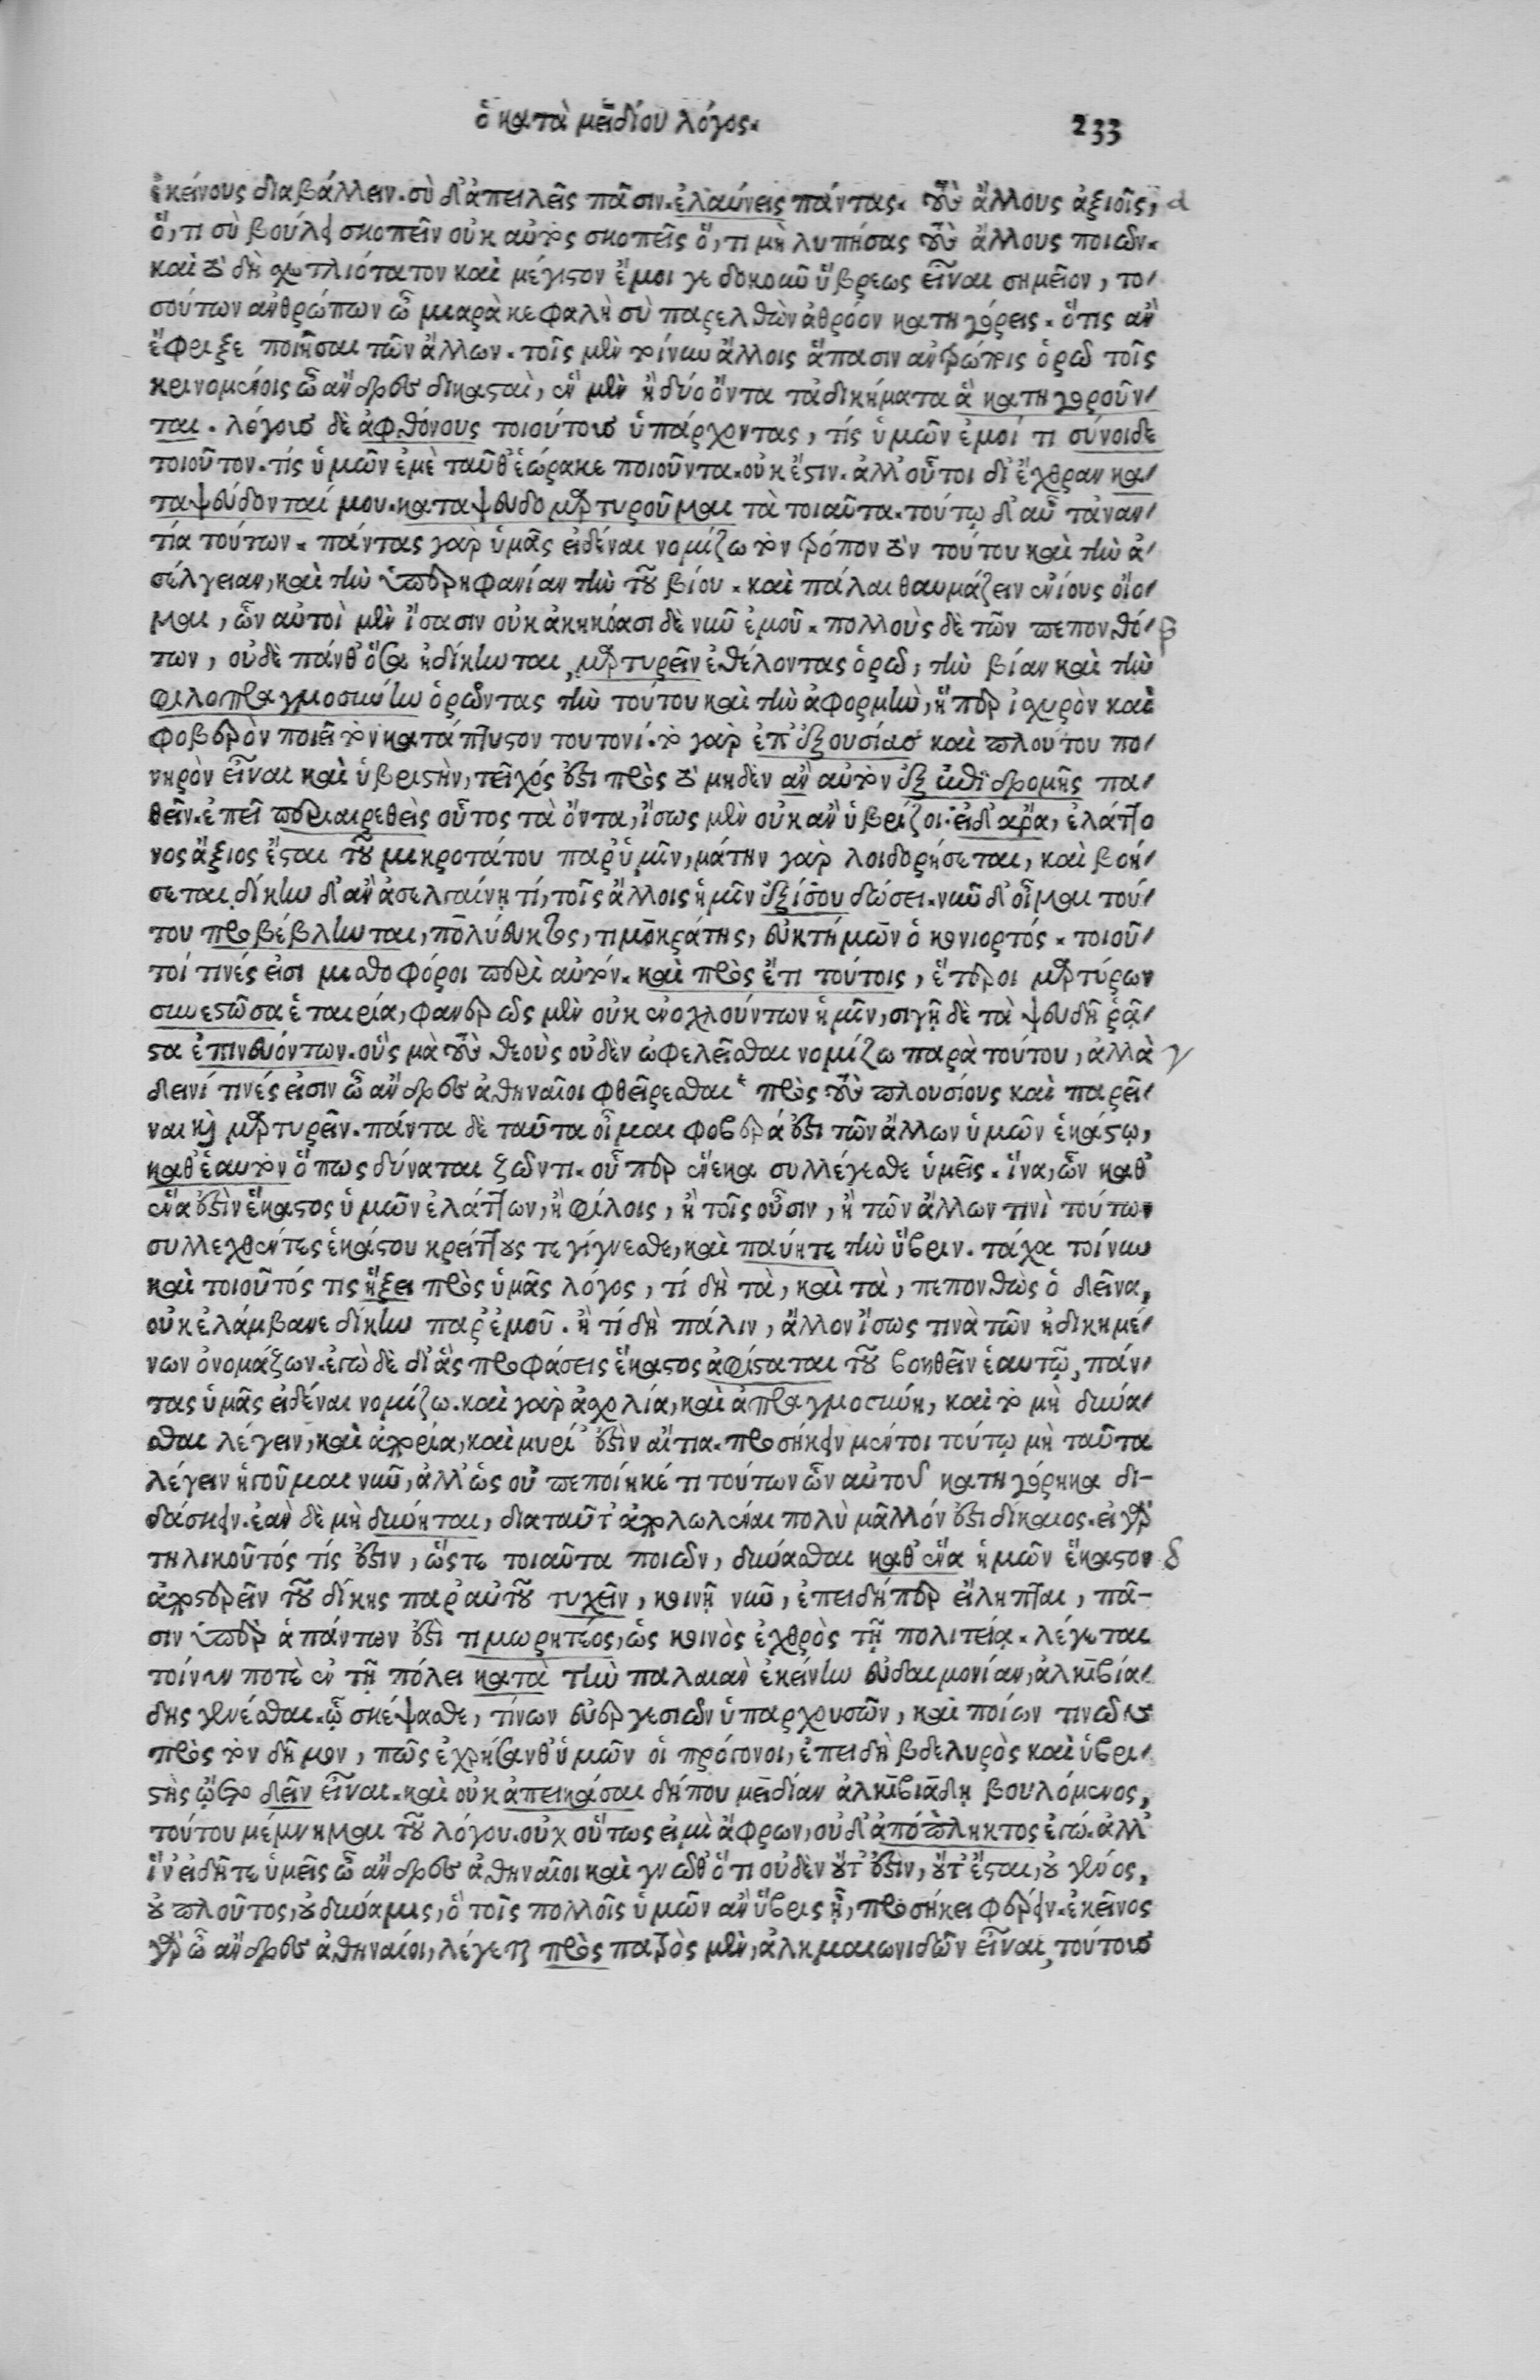 ὁ κατὰ μειδίου λόγος. 233
ἐκείνους διαβάλλειν. σὺ δ' ἀπειλεῖς πᾶσιν. ἐλαύνεις πάντας. τοὺς ἄλλους ἀξιοῖς, α
ὅ, τι σὺ βούλει σκοπεῖν οὐκ αὐτὸς σκοπεῖς ὅ, τι μὴ λυπήσας τοὺς ἄλλους ποιῶν.
καὶ τὸ δὴ σχετλιότατον καὶ μέγιστον ἔμοι γε δοκοῦν ὕβρεως εἶναι σημεῖον, το-
σούτων ἀνθρώπων ὦ μιαρὰ κεφαλὴ σὺ παρελθὼν ἀθρόον κατηγόρεις. ὅ τις ἂν
ἔφριξε ποιῆσαι τῶν ἄλλων. τοῖς μὲν τοίνυν ἄλλοις ἅπασιν ἀνθρώποις ὁρῶ τοῖς
κρινομένοις ὦ ἄνδρες δικασταὶ, ἓν μὲν ἢ δύο ὄντα τἀδικήματα ἃ κατηγοροῦν-
ται. λόγους δὲ ἀφθόνους τοιούτους ὑπάρχοντας, τίς ὑμῶν ἐμοί τι σύνοιδε
τοιοῦτον. τίς ὑμῶν ἐμὲ ταῦθ' ἑώρακε ποιοῦντα. οὐκ ἔστιν. ἀλλ' οὗτοι δι' ἔχθραν κα-
ταψεύδονταί μου. καταψευδομαρτυροῦμαι τὰ τοιαῦτα. τούτῳ δ' αὖ τἀναν-
τία τούτων. πάντας γὰρ ὑμᾶς εἰδέναι νομίζω τὸν τρόπον τὸν τούτου καὶ τὴν ἀ-
σέλγειαν, καὶ τὴν ὑπερηφανίαν τὴν τοῦ βίου. καὶ πάλαι θαυμάζειν ἐνίους οἴο-
μαι, ὧν αὐτοὶ μὲν ἴσασιν οὐκ ἀκηκόασι δὲ νῦν ἐμοῦ. πολλοὺς δὲ τῶν πεπονθό- β
των, οὐδὲ πάνθ' ὅσα ἠδίκηνται, μαρτυρεῖν ἐθέλοντας ὁρῶ, τὴν βίαν καὶ τὴν
φιλοπραγμοσύνην ὁρῶντας τὴν τούτου καὶ τὴν ἀφορμὴν, ἥπερ ἰσχυρὸν καὶ
φοβερὸν ποιεῖ τὸν κατάπτυστον τουτονί. τὸ γὰρ ἐπ' ἐξουσίας καὶ πλούτου πο-
νηρὸν εἶναι καὶ ὑβριστὴν, τεῖχός ἐστι πρὸς τὸ μηδὲν ἂν αὐτὸν ἐξ ἐπιδρομῆς πα-
θεῖν. ἐπεὶ περιαιρεθεὶς οὗτος τὰ ὄντα, ἴσως μὲν οὐκ ἂν ὑβρίζοι. εἰ δ' ἄρα, ἐλάττο
νος ἄξιος ἔσται τοῦ μικροτάτου παρ' ὑμῖν, μάτην γὰρ λοιδορήσεται, καὶ βοή-
σεται. δίκην δ' ἂν ἀσελγαίνῃ τί, τοῖς ἄλλοις ἡμῖν ἐξίσου δώσει. νῦν δ' οἶμαι τού-
του προβέβληνται, πολύευκτος, τιμοκράτης, εὐκτήμων ὁ κονιορτός. τοιοῦ-
τοί τινές εἰσι μισθοφόροι περὶ αὐτόν. καὶ πρὸς ἔτι τούτοις, ἕτεροι μαρτύρων
συνεστῶσα ἑταιρία, φανερῶς μὲν οὐκ ἐνοχλούντων ἡμῖν, σιγῇ δὲ τὰ ψευδῆ ῥᾷ-
στα ἐπινευόντων. οὓς μὰ τοὺς θεοὺς οὐδὲν ὠφελεῖσθαι νομίζω παρὰ τούτου, ἀλλὰ γ
δεινί τινές εἰσιν ὦ ἄνδρες ἀθηναῖοι φθείρεσθαι πρὸς τοὺς πλουσίους καὶ παρεῖ-
ναι καὶ μαρτυρεῖν. πάντα δὲ ταῦτα οἶμαι φοβερά ἐστι τῶν ἄλλων ὑμῶν ἑκάστῳ,
καθ' ἑαυτὸν ὅπως δύναται ζῶντι. οὗπερ ἕνεκα συλλέγεσθε ὑμεῖς. ἵνα, ὧν καθ'
ἕνα ἐστὶν ἕκαστος ὑμῶν ἐλάττων, ἢ φίλοις, ἢ τοῖς οὖσιν, ἢ τῶν ἄλλων τινὶ τούτων
συλλεχθέντες ἑκάστου κρείττους τε γίγνεσθε, καὶ παύητε τὴν ὕβριν. τάχα τοίνυν
καὶ τοιοῦτός τις ἥξει πρὸς ὑμᾶς λόγος, τί δὴ τὰ, καὶ τὰ, πεπονθὼς ὁ δεῖνα,
οὐκ ἐλάμβανε δίκην παρ' ἐμοῦ. ἢ τί δὴ πάλιν, ἄλλον ἴσως τινὰ τῶν ἠδικημέ-
νων ὀνομάζων. ἐγὼ δὲ δι' ἃς προφάσεις ἕκαστος ἀφίσταται τοῦ βοηθεῖν ἑαυτῷ, πάν-
τας ὑμᾶς εἰδέναι νομίζω. καὶ γὰρ ἀσχολία, καὶ ἀπραγμοσύνη, καὶ τὸ μὴ δύνα-
σθαι λέγειν, καὶ ἀπορία, καὶ μυρί' ἐστὶν αἴτια. προσήκειν μέντοι τούτῳ μὴ ταῦτα
λέγειν ἡγοῦμαι νῦν, ἀλλ' ὡς οὐ πεποίηκέ τι τούτων ὧν αὐτοῦ κατηγόρηκα δι-
δάσκειν. ἐὰν δὲ μὴ δύνηται, διαταῦτ' ἀπολωλέναι πολὺ μᾶλλόν ἐστι δίκαιος. εἰ γάρ
τηλικοῦτός τίς ἐστιν, ὥστε τοιαῦτα ποιῶν, δύνασθαι καθ' ἕνα ἡμῶν ἕκαστον δ
ἀποστερεῖν τοῦ δίκης παρ' αὐτοῦ τυχεῖν, κοινῇ νῦν, ἐπειδήπερ εἴληπται, πᾶ-
σιν ὑπὲρ ἁπάντων ἐστὶ τιμωρητέος, ὡς κοινὸς ἐχθρὸς τῇ πολιτείᾳ. λέγεται
τοίνυν ποτὲ ἐν τῇ πόλει κατὰ τὴν παλαιὰν ἐκείνην εὐδαιμονίαν, ἀλκιβιά-
δης γενέσθαι. ᾧ σκέψασθε, τίνων εὐεργεσιῶν ὑπαρχουσῶν, καὶ ποίων τινῶν
πρὸς τὸν δῆμον, πῶς ἐχρήσανθ' ὑμῶν οἱ πρόγονοι, ἐπειδὴ βδελυρὸς καὶ ὑβρι-
στὴς ᾤετο δεῖν εἶναι. καὶ οὐκ ἀπεικάσαι δήπου μειδίαν ἀλκιβιάδῃ βουλόμενος,
τούτου μέμνημαι τοῦ λόγου. οὐχ οὕτως εἰμὶ ἄφρων, οὐδ' ἀπόπληκτος ἐγώ. ἀλλ'
ἵν' εἰδῆτε ὑμεῖς ὦ ἄνδρες ἀθηναῖοι καὶ γνῶθ' ὅτι οὐδὲν οὔτ' ἐστὶν, οὔτ' ἔσται, οὐ γένος,
οὐ πλοῦτος, οὐ δύναμις, ὃ τοῖς πολλοῖς ὑμῶν ἂν ὕβρις ᾖ, προσήκει φέρειν. ἐκεῖνος
γὰρ ὦ ἄνδρες ἀθηναίοι, λέγεται πρὸς πατρὸς μὲν, ἀλκμαιωνιδῶν εἶναι, τούτους